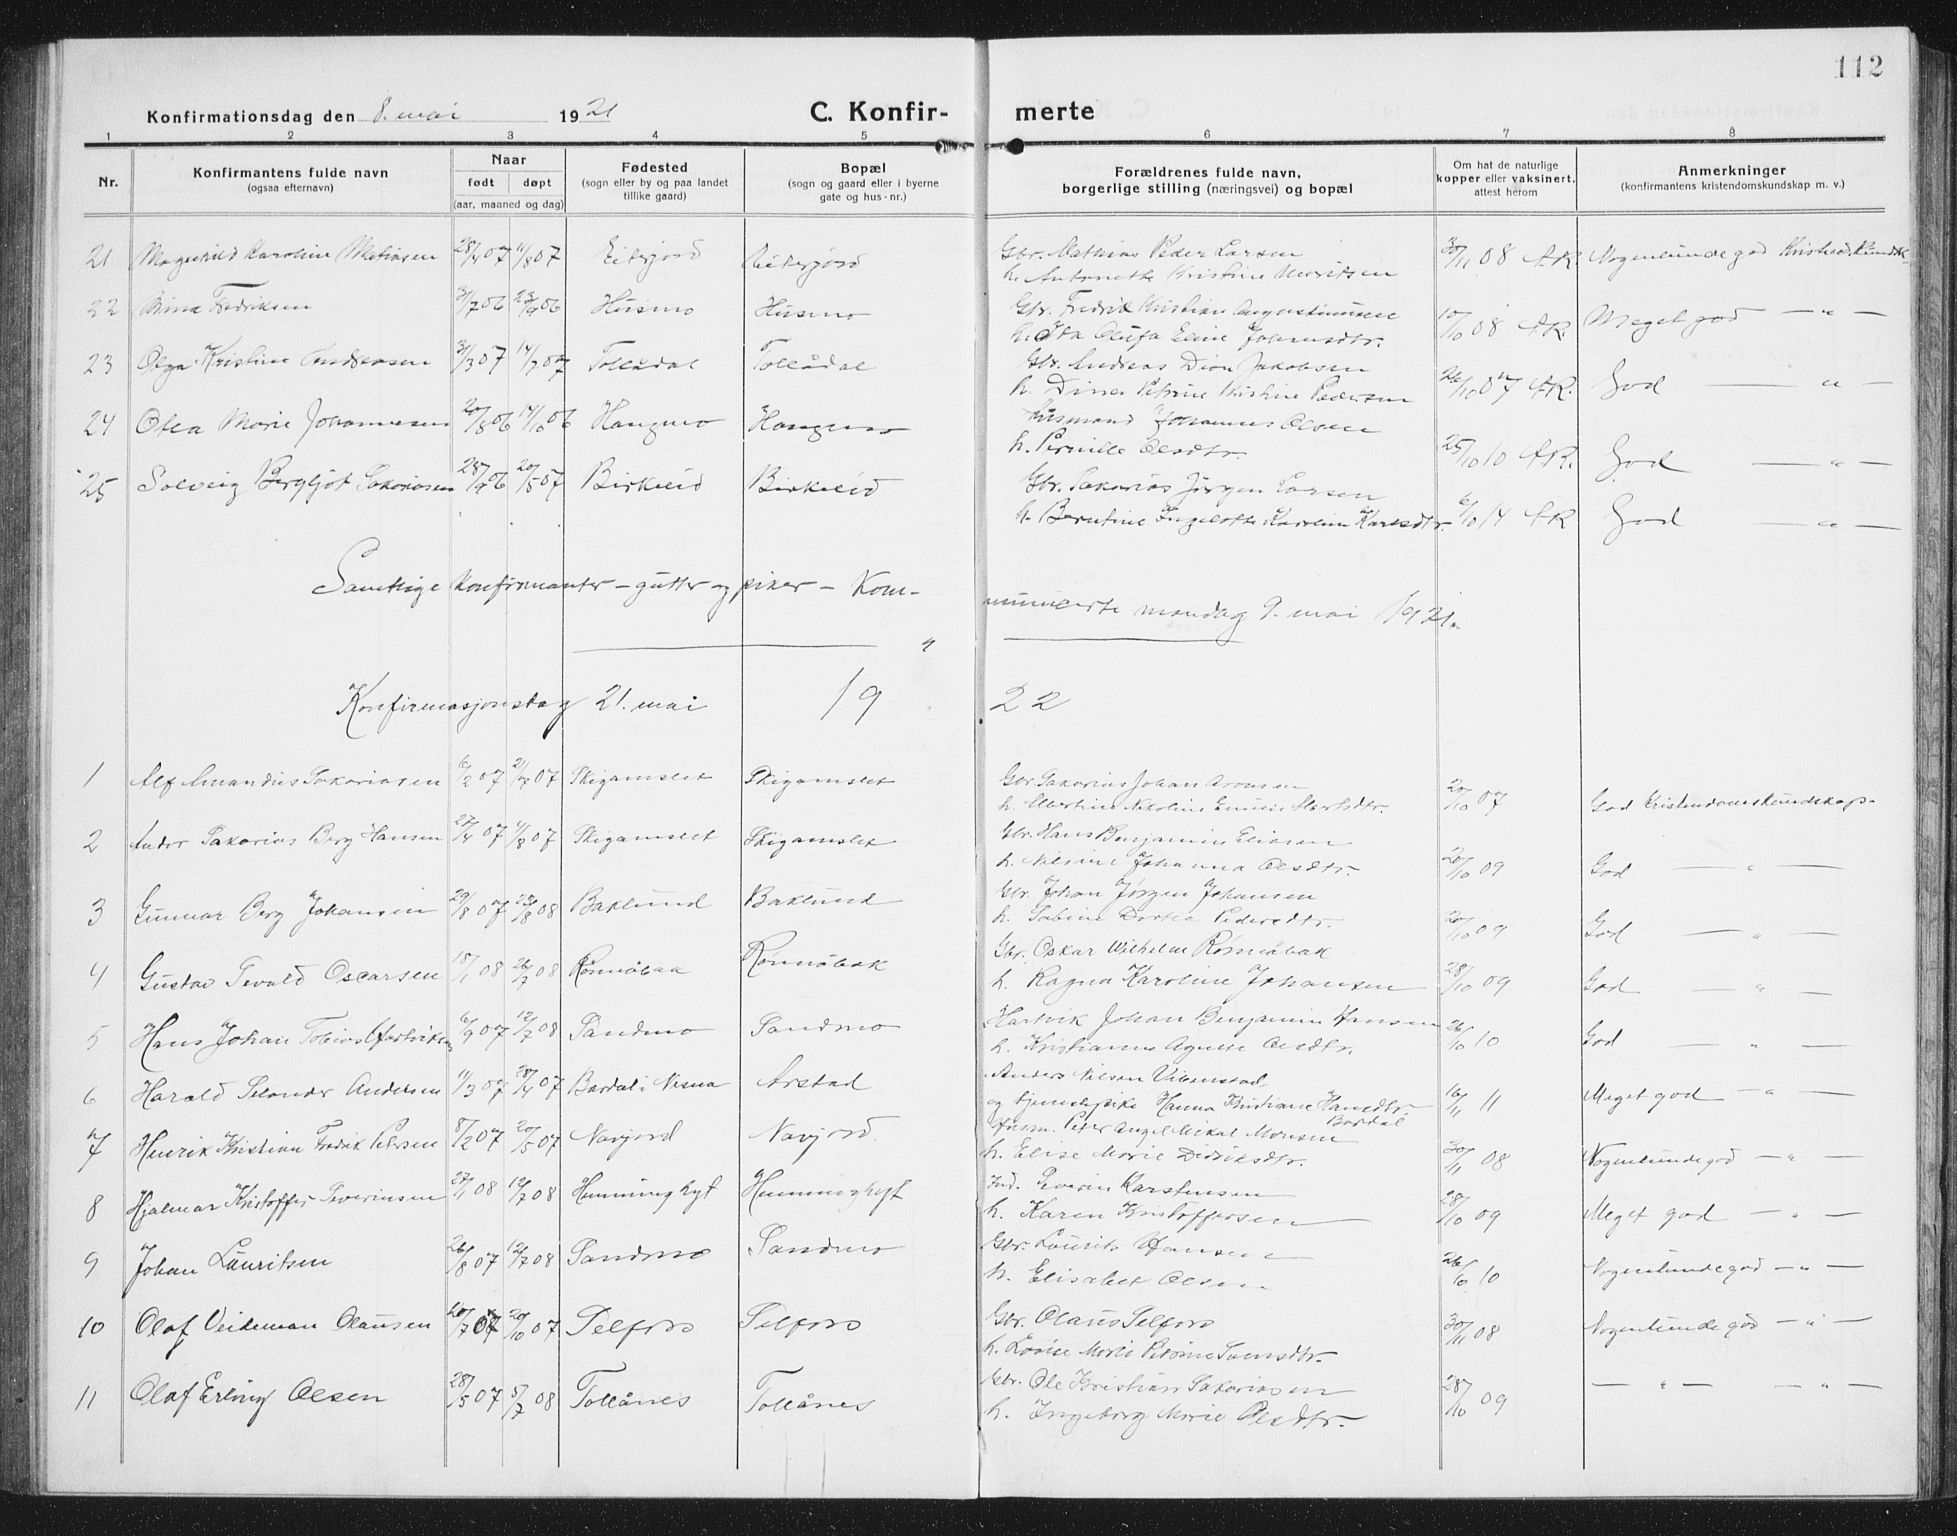 112
Konfirmationsdag den 8. mai 1921 C. Konfirmerte
1 2 3 4 5 6 7 8
Nr.
Konfirmantens fulde navn
(ogsaa efternavn)
Naar
født døpt
(aar, maaned og dag)
Fødested
(sogn eller by og paa landet
tillike gaard)
Bopæl
(sogn og gaard eller i byerne
gate og hus-nr.)
Forældrenes fulde navn,
borgerlige stilling (næringsvei) og bopæl
Om hat de naturlige
kopper eller vaksinert,
attest herom
Anmerkninger
(konfirmantens kristendomskundskap m. v.)
21 Magnhild Karoline Matiasen 28/4 07 11/8 07 Gbr. Mathias Peder Larsen 30/11 08 Nogenlunde god
h. Antonette Kristine
22 Fredriksen 31/7 06 23/9 06 Husmo Husmo Gbr. Fredrik Kristian 10/10 08 Meget god — " —
h. Ida Olufa Eline Johansdtr.
23 Olga Kristine Andreasen 31/3 07 14/7 07 Tollådal Tollådal Gbr. Andreas Dion Jakobsen 26/10 07 God — " —
h. Petrine Kristine Pedersen
24 Olea Marie Johannesen 20/8 06 14/10 06 Hangmo Hangmo Husmand Johannes Olsen 25/10 10 God — " —
h. Pernille Olsdtr.
25 Solveig Bergljot Sakariasen 28/9 06 20/5 07 Birkelid Birkelid Gbr. Sakarias Jørgen Larsen 6/10 14 God — " —
h. Berntine Ingelotte Karoline Karlsdtr.
Samtlige konfirmanter – gutter og piker – kommunicerte mandag 9. mai 1921.
Konfirmasjonsdag 21. mai 1922
1 Alf Amandus Sakariasen 6/2 07 21/7 07 Skigamslet Skigamslet Gbr. Sakarias Johan Aronsen 20/10 07 God Kristendomskundskap.
h. Albertine Nikoline
2 Andor Sakarias Berg Hansen 27/4 07 4/8 07 Skigamslet Skigamslet Gbr. Hans Benjamin Eliasen 20/10 09 God — " —
h. Nilsine Johanna Olsdtr.
3 Gunnar Berg Johansen 29/8 07 23/8 08 Baklund Baklund Gbr. Johan Jørgen Johansen 20/10 09 God — " —
h. Sabine Dortea Pedersdtr.
4 Gustav Sevald Oscarsen 18/1 08 26/7 08 Rønnåbak Gbr. Oskar Wilhelm Rønnåbak 28/10 09 God — " —
h. Ragna Karoline Johansen
5 Hans Johan Tobias Hartviksen 6/9 07 12/7 08 Sandmo Sandmo Hartvik Johan Benjamin Hansen 26/10 10 God — " —
h. Kristianne Olsdtr.
6 Harald Selander Andersen 11/3 07 28/4 07 Bardal i Nesna Årstad Anders Nilsen 16/11 11 Meget god — " —
og tjenestepike Hanna Kristiane Hansdtr. Bardal
7 Henrik Kristian Fredrik Petersen 8/2 07 20/5 07 Navjord Navjord. Husm. Peter Angel Mikal Monsen 30/11 08 Nogenlunde god — " —
h. Elise Marie Didriksdtr.
8 Hjalmar Kristoffer Severinsen 27/1 08 12/7 08 Henninghyt Henninghyt Ind. Severin Karstensen 28/10 09 Meget god — " —
h. Karen Kristoffersen
9 Johan Lauritsen 26/8 07 12/7 08 Sandmo Sandmo Gbr. Laurits Hansen 26/10 10 Nogenlunde god — " —
h. Elisabet Olsen
10 Olaf Veideman Olausen 20/10 07 Selfors Selfors Gbr. Olaus Selfors 30/11 08 Nogenlunde god — " —
h. Lovise Marie
11 Olaf Erling Olsen 28/5 07 5/7 08 Tollånes Tollånes Gbr. Ole Kristian Sakariasen 28/10 09 — " — — " —
h. Ingeborg Marie Olsdtr.